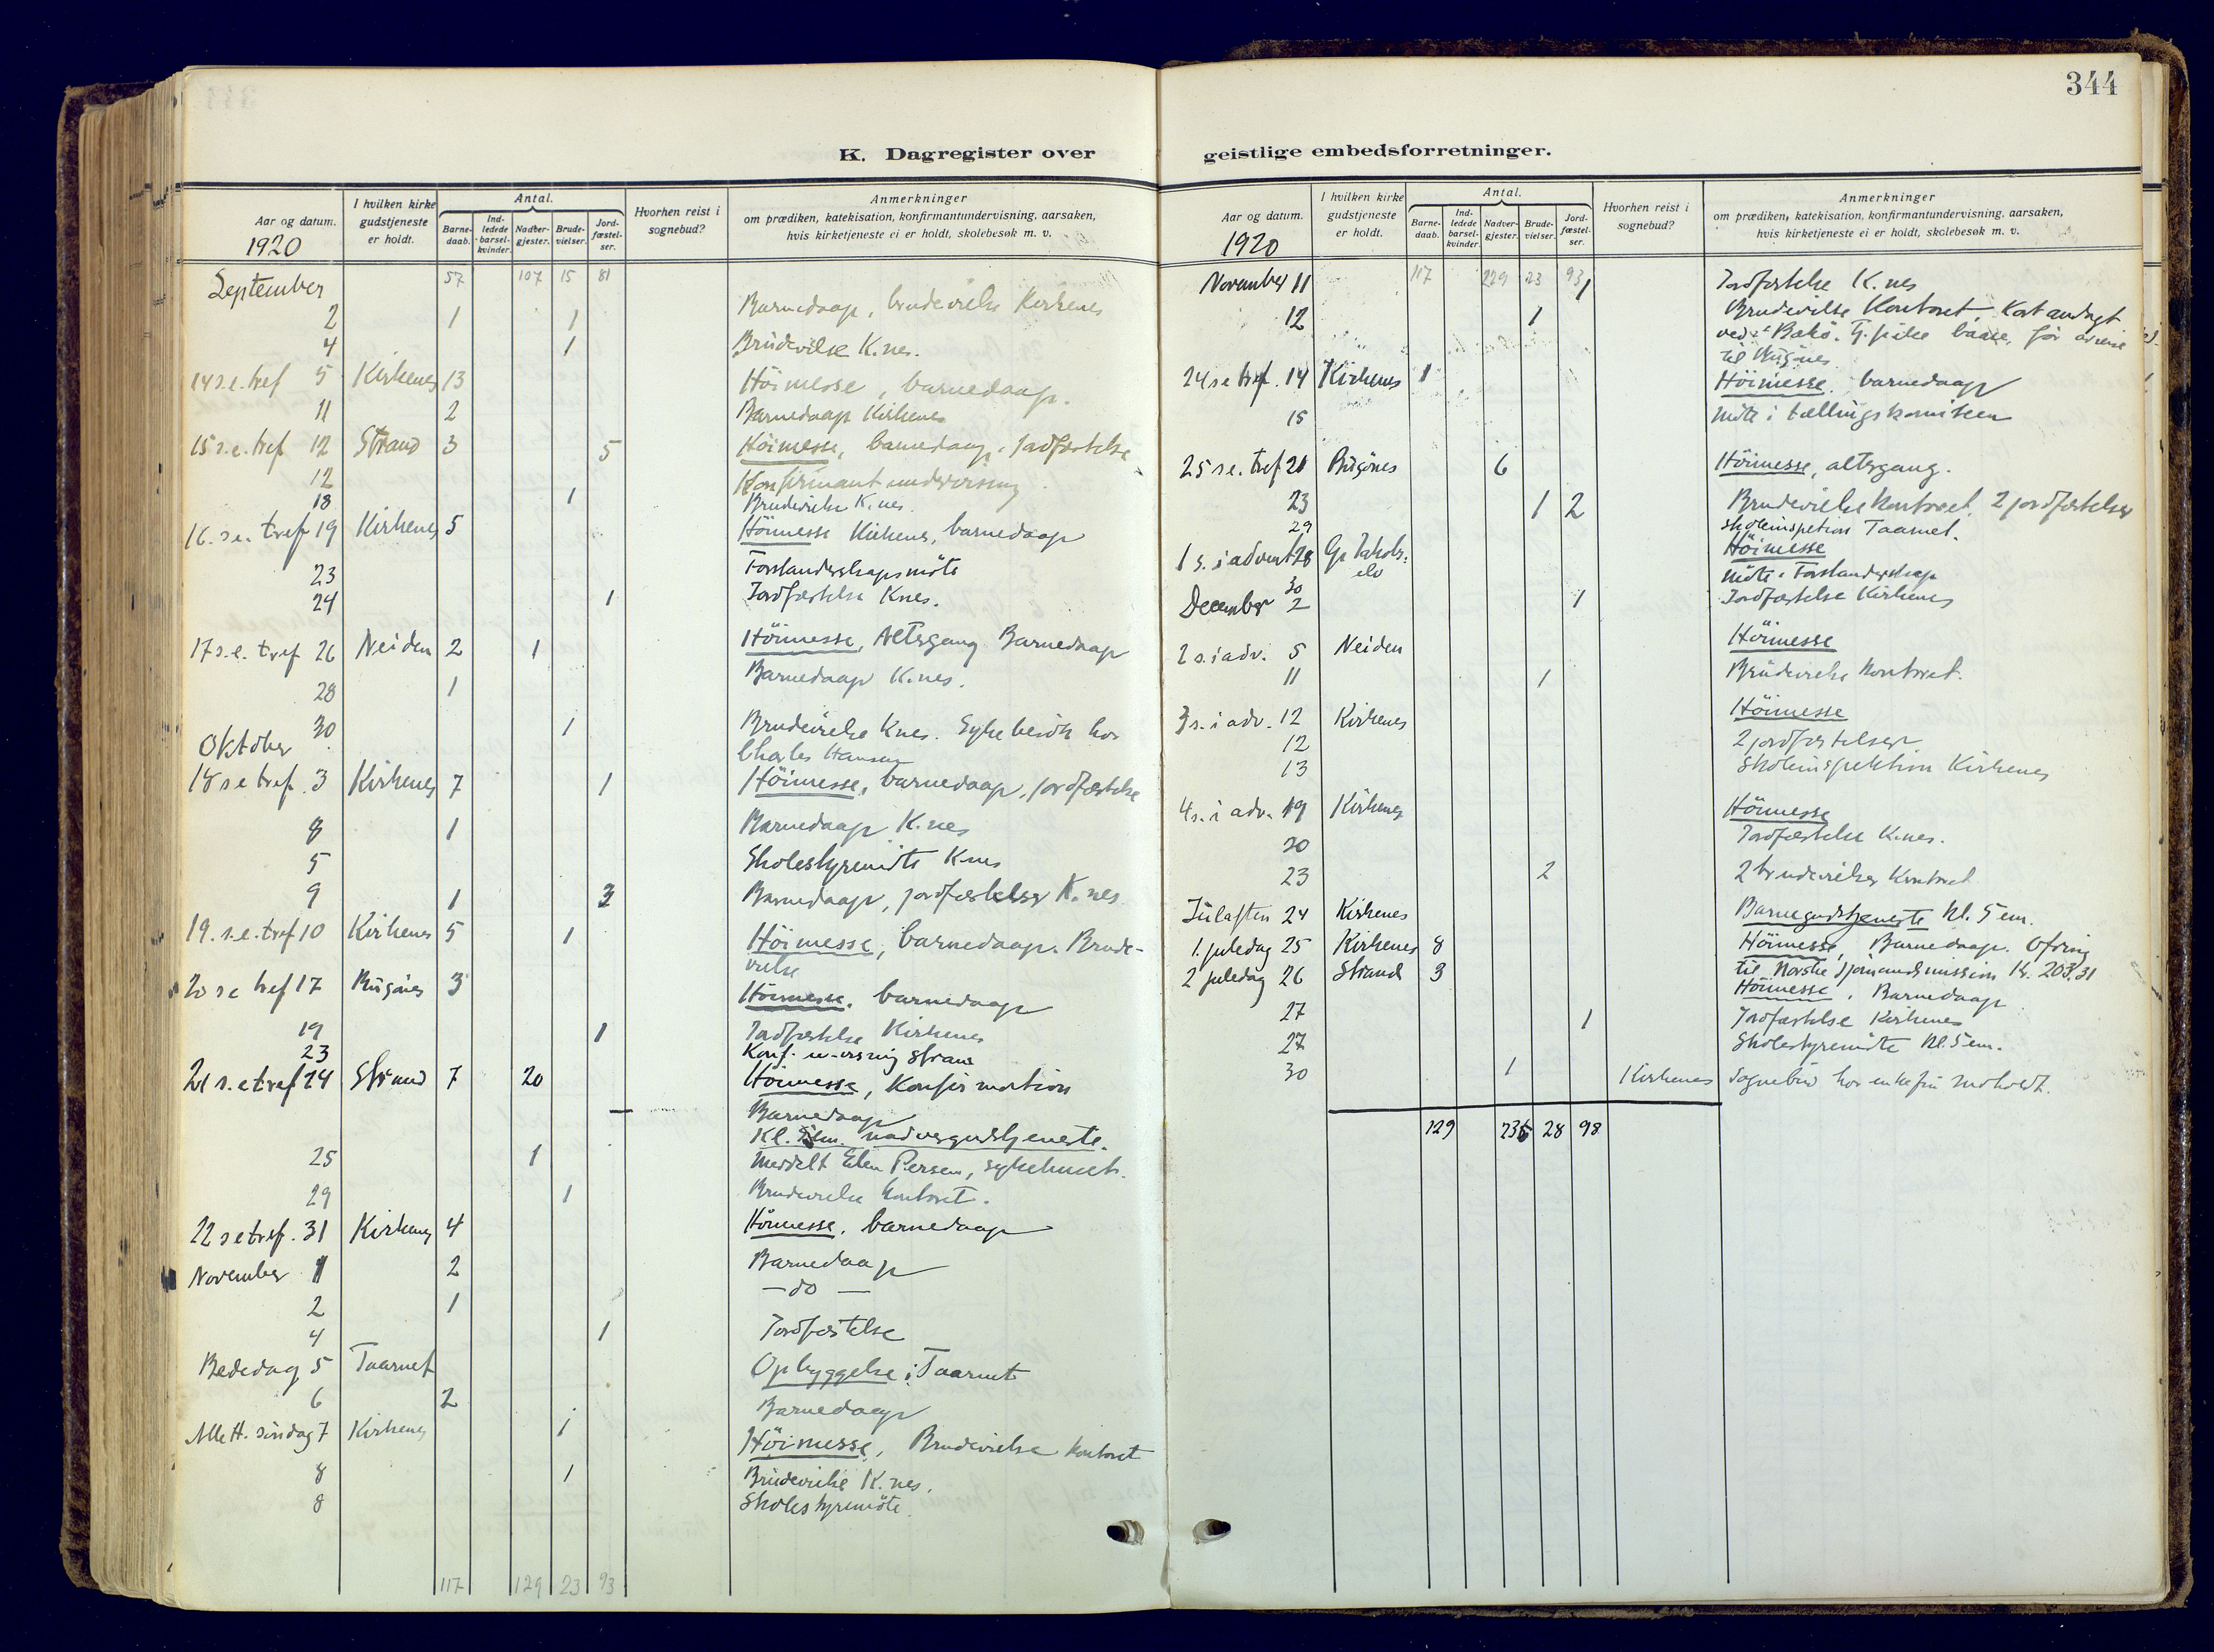 344
K. Dagregister over geistlige embedsforretninger.
Aar og datum. 1920
I hvilken kirke gudstjeneste er holdt.
Antal.
Barne-daab.
Ind-ledede barsel-kvinder.
Nadver-gjester.
Brude-vielser.
Jord-fæstel-ser.
Hvorhen reist i sognebud?
Anmerkninger
om prædiken, katekisation, konfirmantundervisning, aarsaken,
hvis kirketjeneste ei er holdt, skolebesøk m. v.
September 57 107 15 81
2 1 1 Barnedaap, brudevielse Kirkenes
4 1 Brudevilse K.nes.
14 s.e. tref 5 Kirkenes 13 Höimesse, barnedaap.
11 2 Barnedaap Kirkenes
15 s.e. tref 12 Strand 3 5 Höimesse, barnedaap, jordfæstelse
12 Konfirmantundervisning
18 1 Brudevielse K.nes.
16. s.e. tref 19 Kirkenes 5 Höimesse Kirkenes, barnedaap
23 Forstanderskapsmöte
24 1 Jordfæstelse Knes.
17 s.e. tref 26 Neiden 2 1 Höimesse, Altergang Barnedaap
28 1 Barnedaap K.nes.
30 1 Brudevielse Knes. Sykebesök hos
Oktober Charles Hansen
18 s e tref. 3 Kirkenes 7 1 Höimesse, barnedaap, jordfæstelse
8 1 Barnedaap K.nes
5 Skolestyremöte Knes
9 1 3 Barnedaap, jordfæstelser K.nes
19. s.e. tref 10 Kirkenes 5 1 Höimesse, barnedaap. Brude-
vielse
20 s e tref 17 Bugönes 3 Höimesse. barnedaap
19 1 Jordfæstelse Kirkenes
23 Konf. u-visning Strand
21 s.e tref 24 Strand 7 20 Höimesse, Konfirmation
Barnedaap
Kl. em. nadvergudstjeneste.
25 1 Meddelt Elen Persen, sykehuset.
29 1 Brudevielse kontoret.
22 s e tref. 31 Kirkenes 4 Höimesse. barnedaap
November 1 2 Barnedaap
2 1 — do —
4 1 Jordfæstelse
Bededag 5 Taarnet Opbyggelse i Taarnet
6 2 Barnedaap
Alle H. söndag 7 Kirkenes 1 Höimesse, Brudevielse kontoret
8 1 Brudevielse K.nes.
8 Skolestyremöte.
117 129 23 93
Aar og datum. 1920
I hvilken kirke gudstjeneste er holdt.
Antal.
Barne-daab.
Ind-ledede barsel-kvinder.
Nadver-gjester.
Brude-vielser.
Jord-fæstel-ser.
Hvorhen reist i sognebud?
Anmerkninger
om prædiken, katekisation, konfirmantundervisning, aarsaken,
hvis kirketjeneste ei er holdt, skolebesøk m. v.
117 229 23 93
November 11 1 Jordfæstelse K.nes
12 1 Brudevilse Kontoret. Kort andagt
ved baare, før avreise
til Bugönes
24 s e tref. 14 Kirkenes 1 Höimesse. barnedaap
15 möte i tællingskomiteen
25 s e. tref 21 Bugönes 6 Höimesse, altergang.
23 1 2 Brudevielse kontoret, 2 jordfæstelser
29 Skoleinspektion Taarnet.
1 s. i advent 28 Gr Jakobs-elv Höimesse
30 Möte i Forstanderskap
December 2 1 Jordfæstelse Kirkenes
2 s. i adv. 5 Neiden Höimesse
11 1 Brudevielse kontoret.
3 s. i adv. 12 Kirkenes Höimesse
12 2 jordfæstelser
13 Skoleinspektion Kirkenes
4 s. i adv. 19 Kirkenes Höimesse
20 Jordfæstelse K.nes.
23 2 2 brudevielser Kontoret
Julaften 24 Kirkenes Barnegudstjeneste kl. 5 em.
1. juledag 25 Kirkenes 8 Höimesse, Barnedaap. Ofring
til Norske Sjömandsmission Kr. 203.31
2 juledag 26 Strand 3 Höimesse, Barnedaap
27 1 Jordfæstelse Kirkenes
27 Skolestyremöte kl. 5 em.
30 1 Kirkenes Sognebud hos enkefru Moholdt.
129 236 28 98